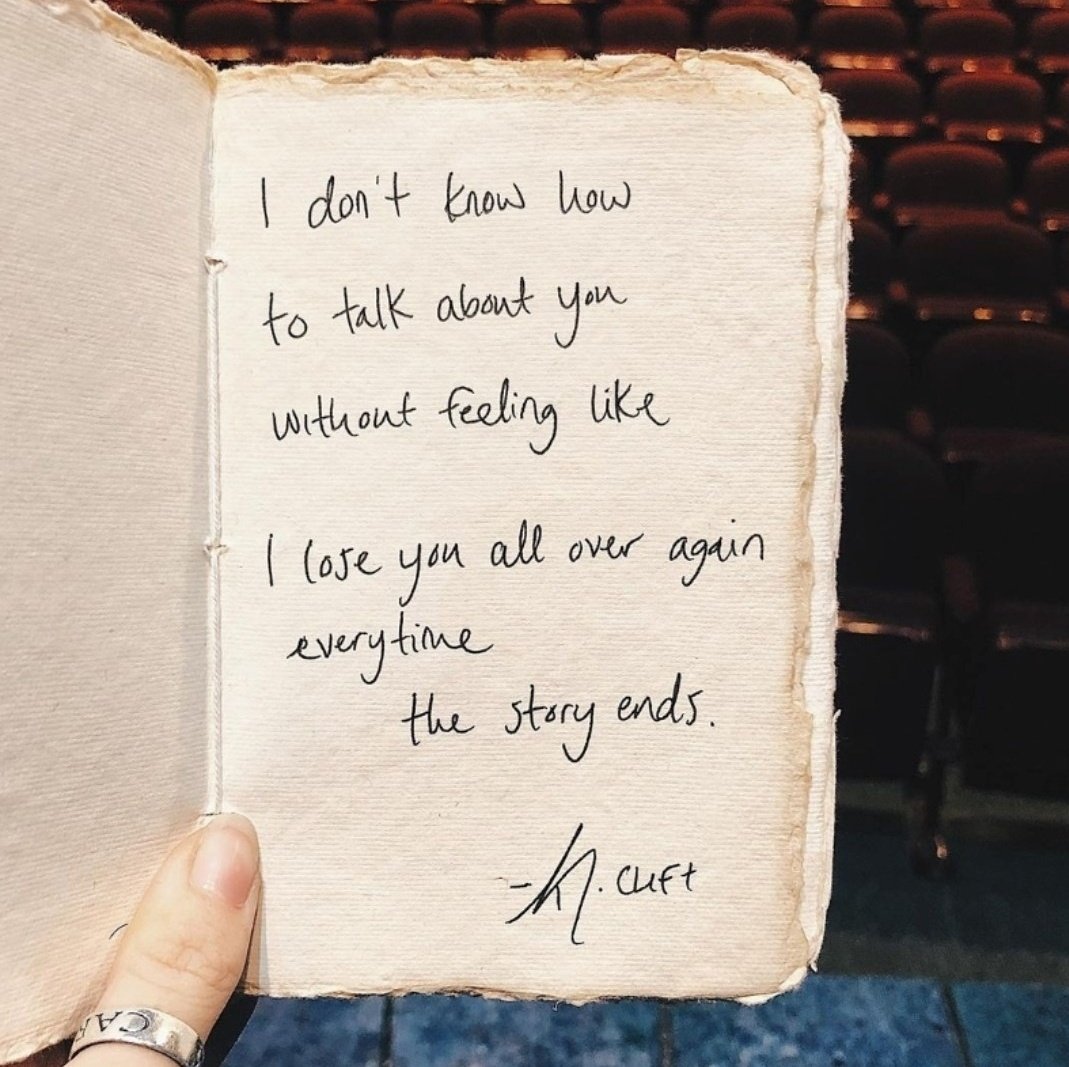 I don't know how
to talk about you
without feeling like
I lose you all over again
everytime
the story ends.
-K. Clift
CA